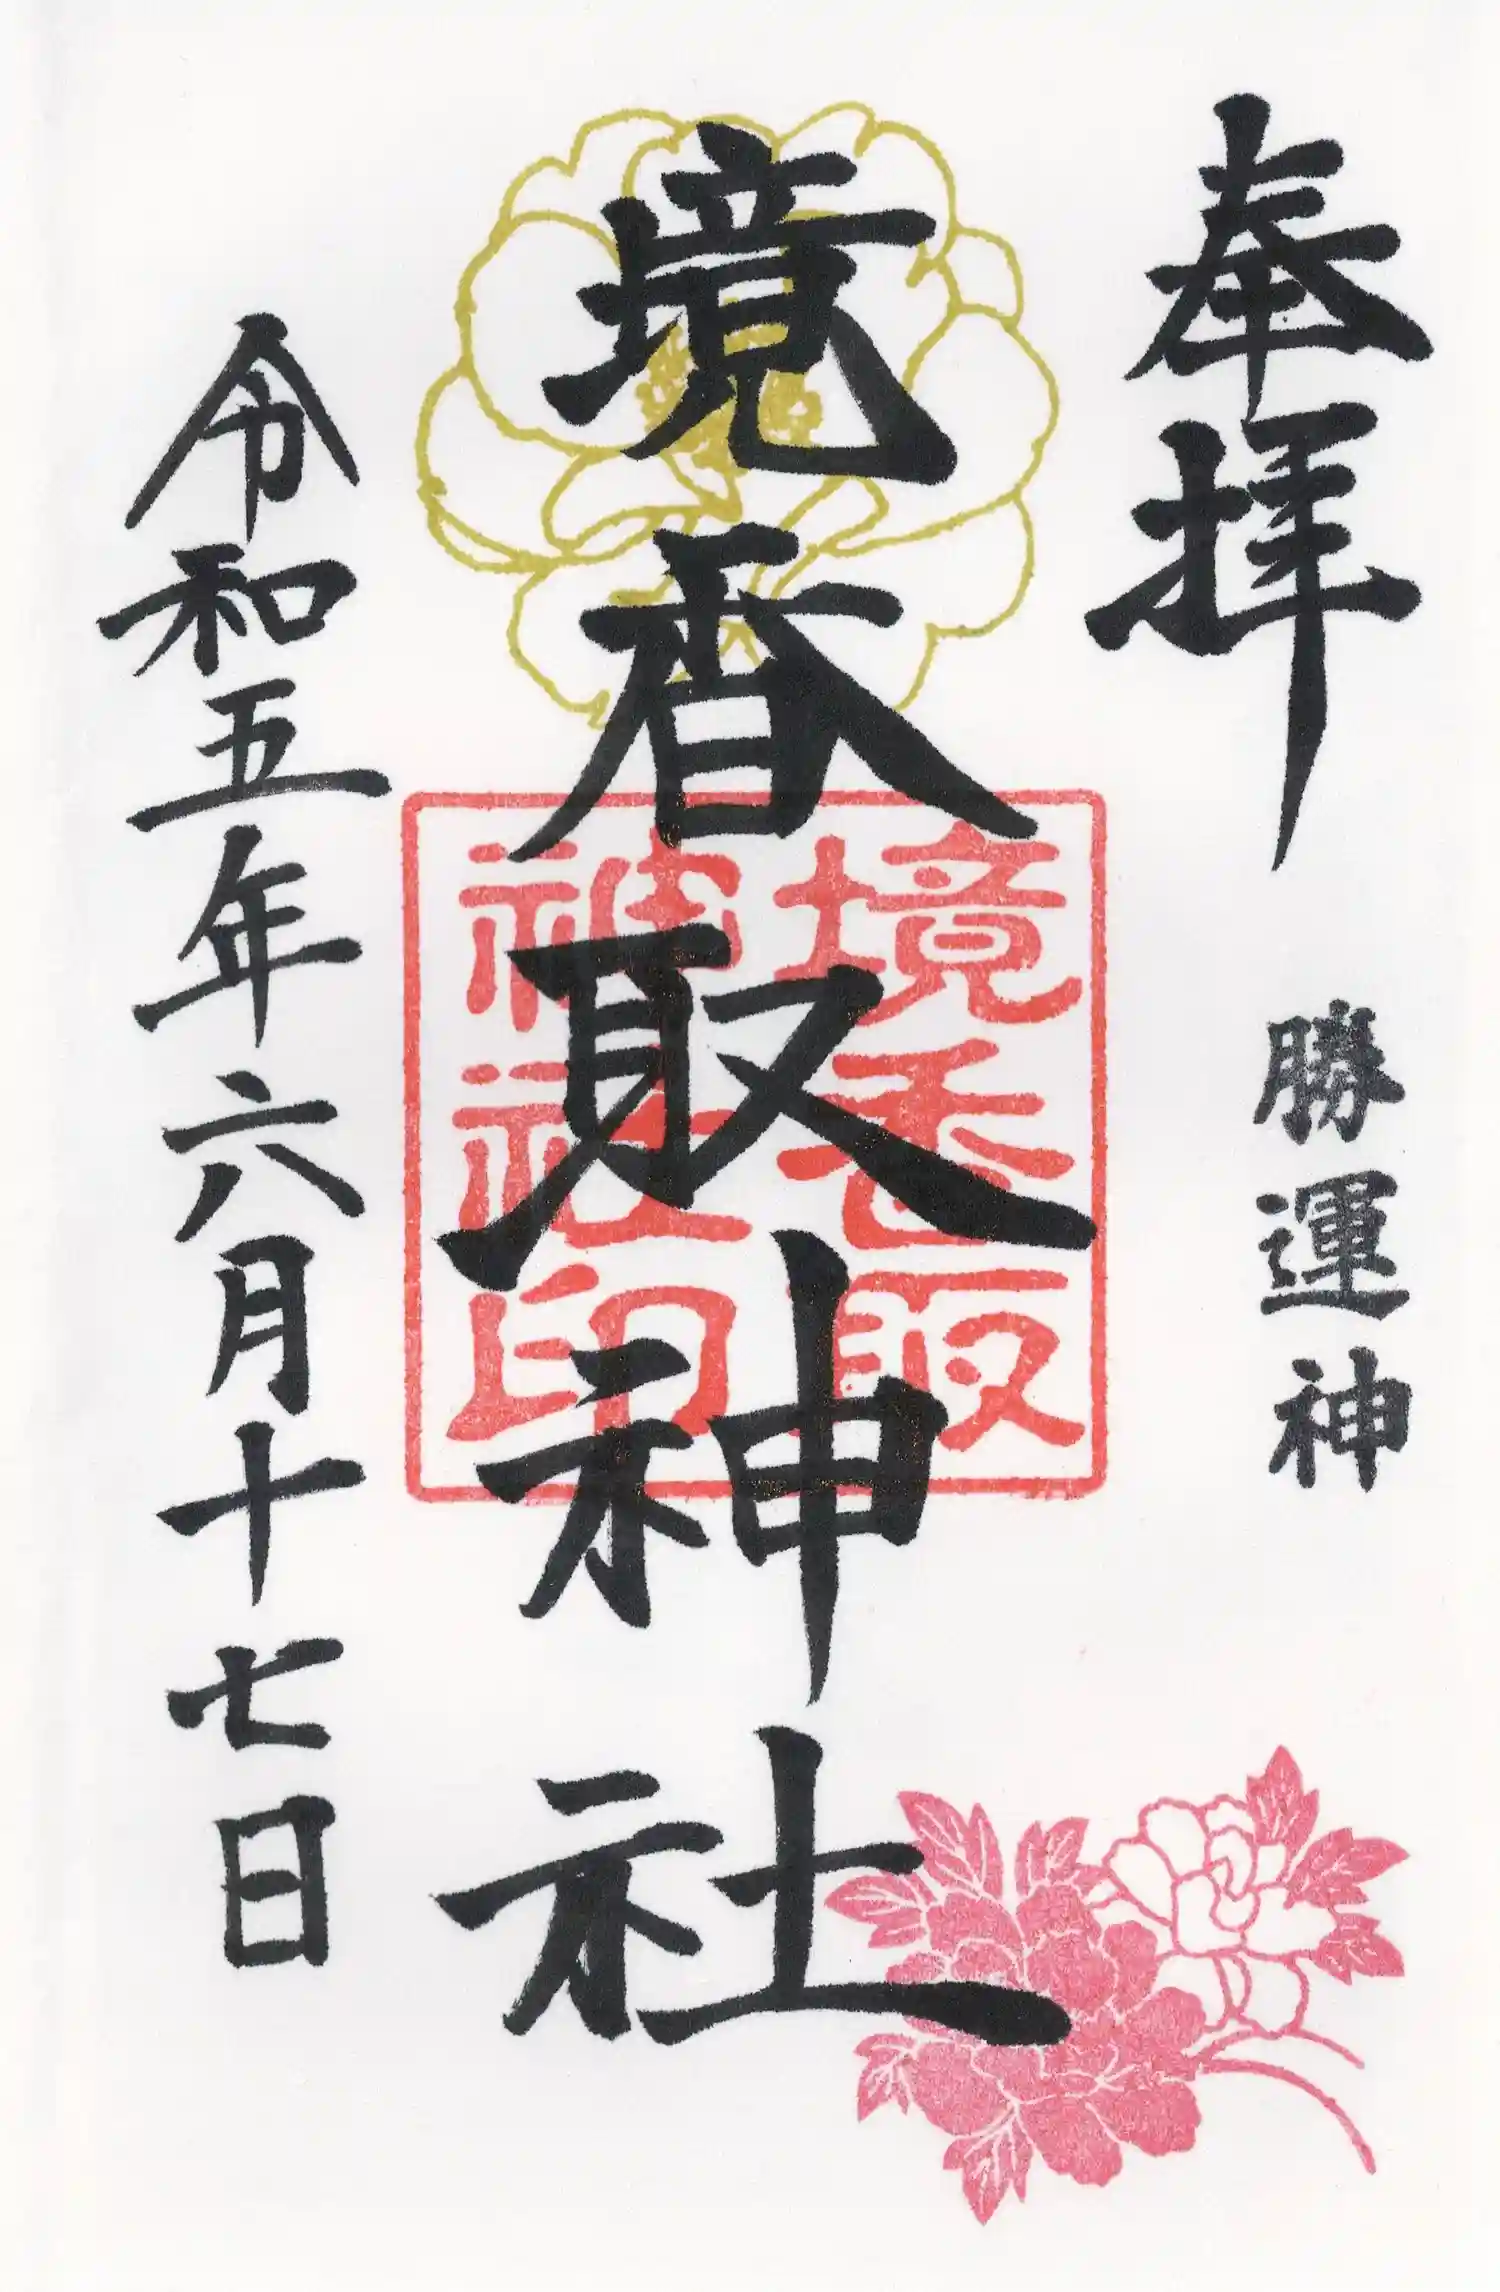 奉拝
勝運神
境香取神社
境香取
神社印
令和五年六月十七日